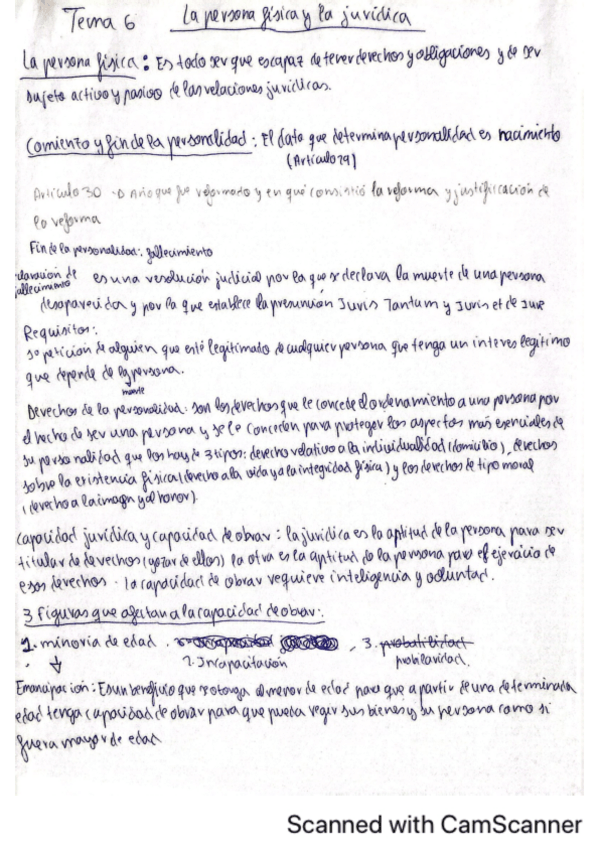 Tema 6 La persona física y la jurídica
La persona física: Es todo ser que es capaz de tener derechos y obligaciones y de ser
sujeto activo y pasivo de las relaciones jurídicas.
Comiento y fin de la personalidad: El dato que determina personalidad es nacimiento
(Artículo 29)
Artículo 30 → Año que fue reformado y en qué consistió la reforma y justificación de
la reforma
Fin de la personalidad: fallecimiento
claración de
fallecimiento es una resolución judicial por la que se declara la muerte de una persona
desaparecida y por la que establece la presunción Juris Tantum y Juris et de Jure
Requisitos:
so petición de alguien que esté legitimado de cualquier persona que tenga un interes legítimo
que depende de la persona.
muerte
Derechos de la personalidad: son los derechos que le concede el ordenamiento a una persona por
el hecho de ser una persona y se le conceden para proteger los aspectos más esenciales de
su personalidad que los hay de 3 tipos: derecho relativo a la individualidad (domicilio), derechos
sobre la existencia física (derecho a la vida y a la integridad física) y los derechos de tipo moral
(derecho a la imagn y al honor).
capacidad jurídica y capacidad de obrar: la jurídica es la aptitud de la persona para ser
titular de derechos (gozar de ellos) la otra es la aptitud de la persona para el ejercicio de
esos derechos. la capacidad de obrar requiere inteligencia y voluntad.
3 Figuras que afectan a la capacidad de obrar:
1. minoría de edad. , 3. probabilidad
2. Incapacitación prodigalidad.
Emancipación: Es un beneficio que se otorga al menor de edad para que a partir de una determinada
edad tenga capacidad de obrar para que pueda regir sus bienes y su persona como si
fuera mayor de edad
Scanned with CamScanner